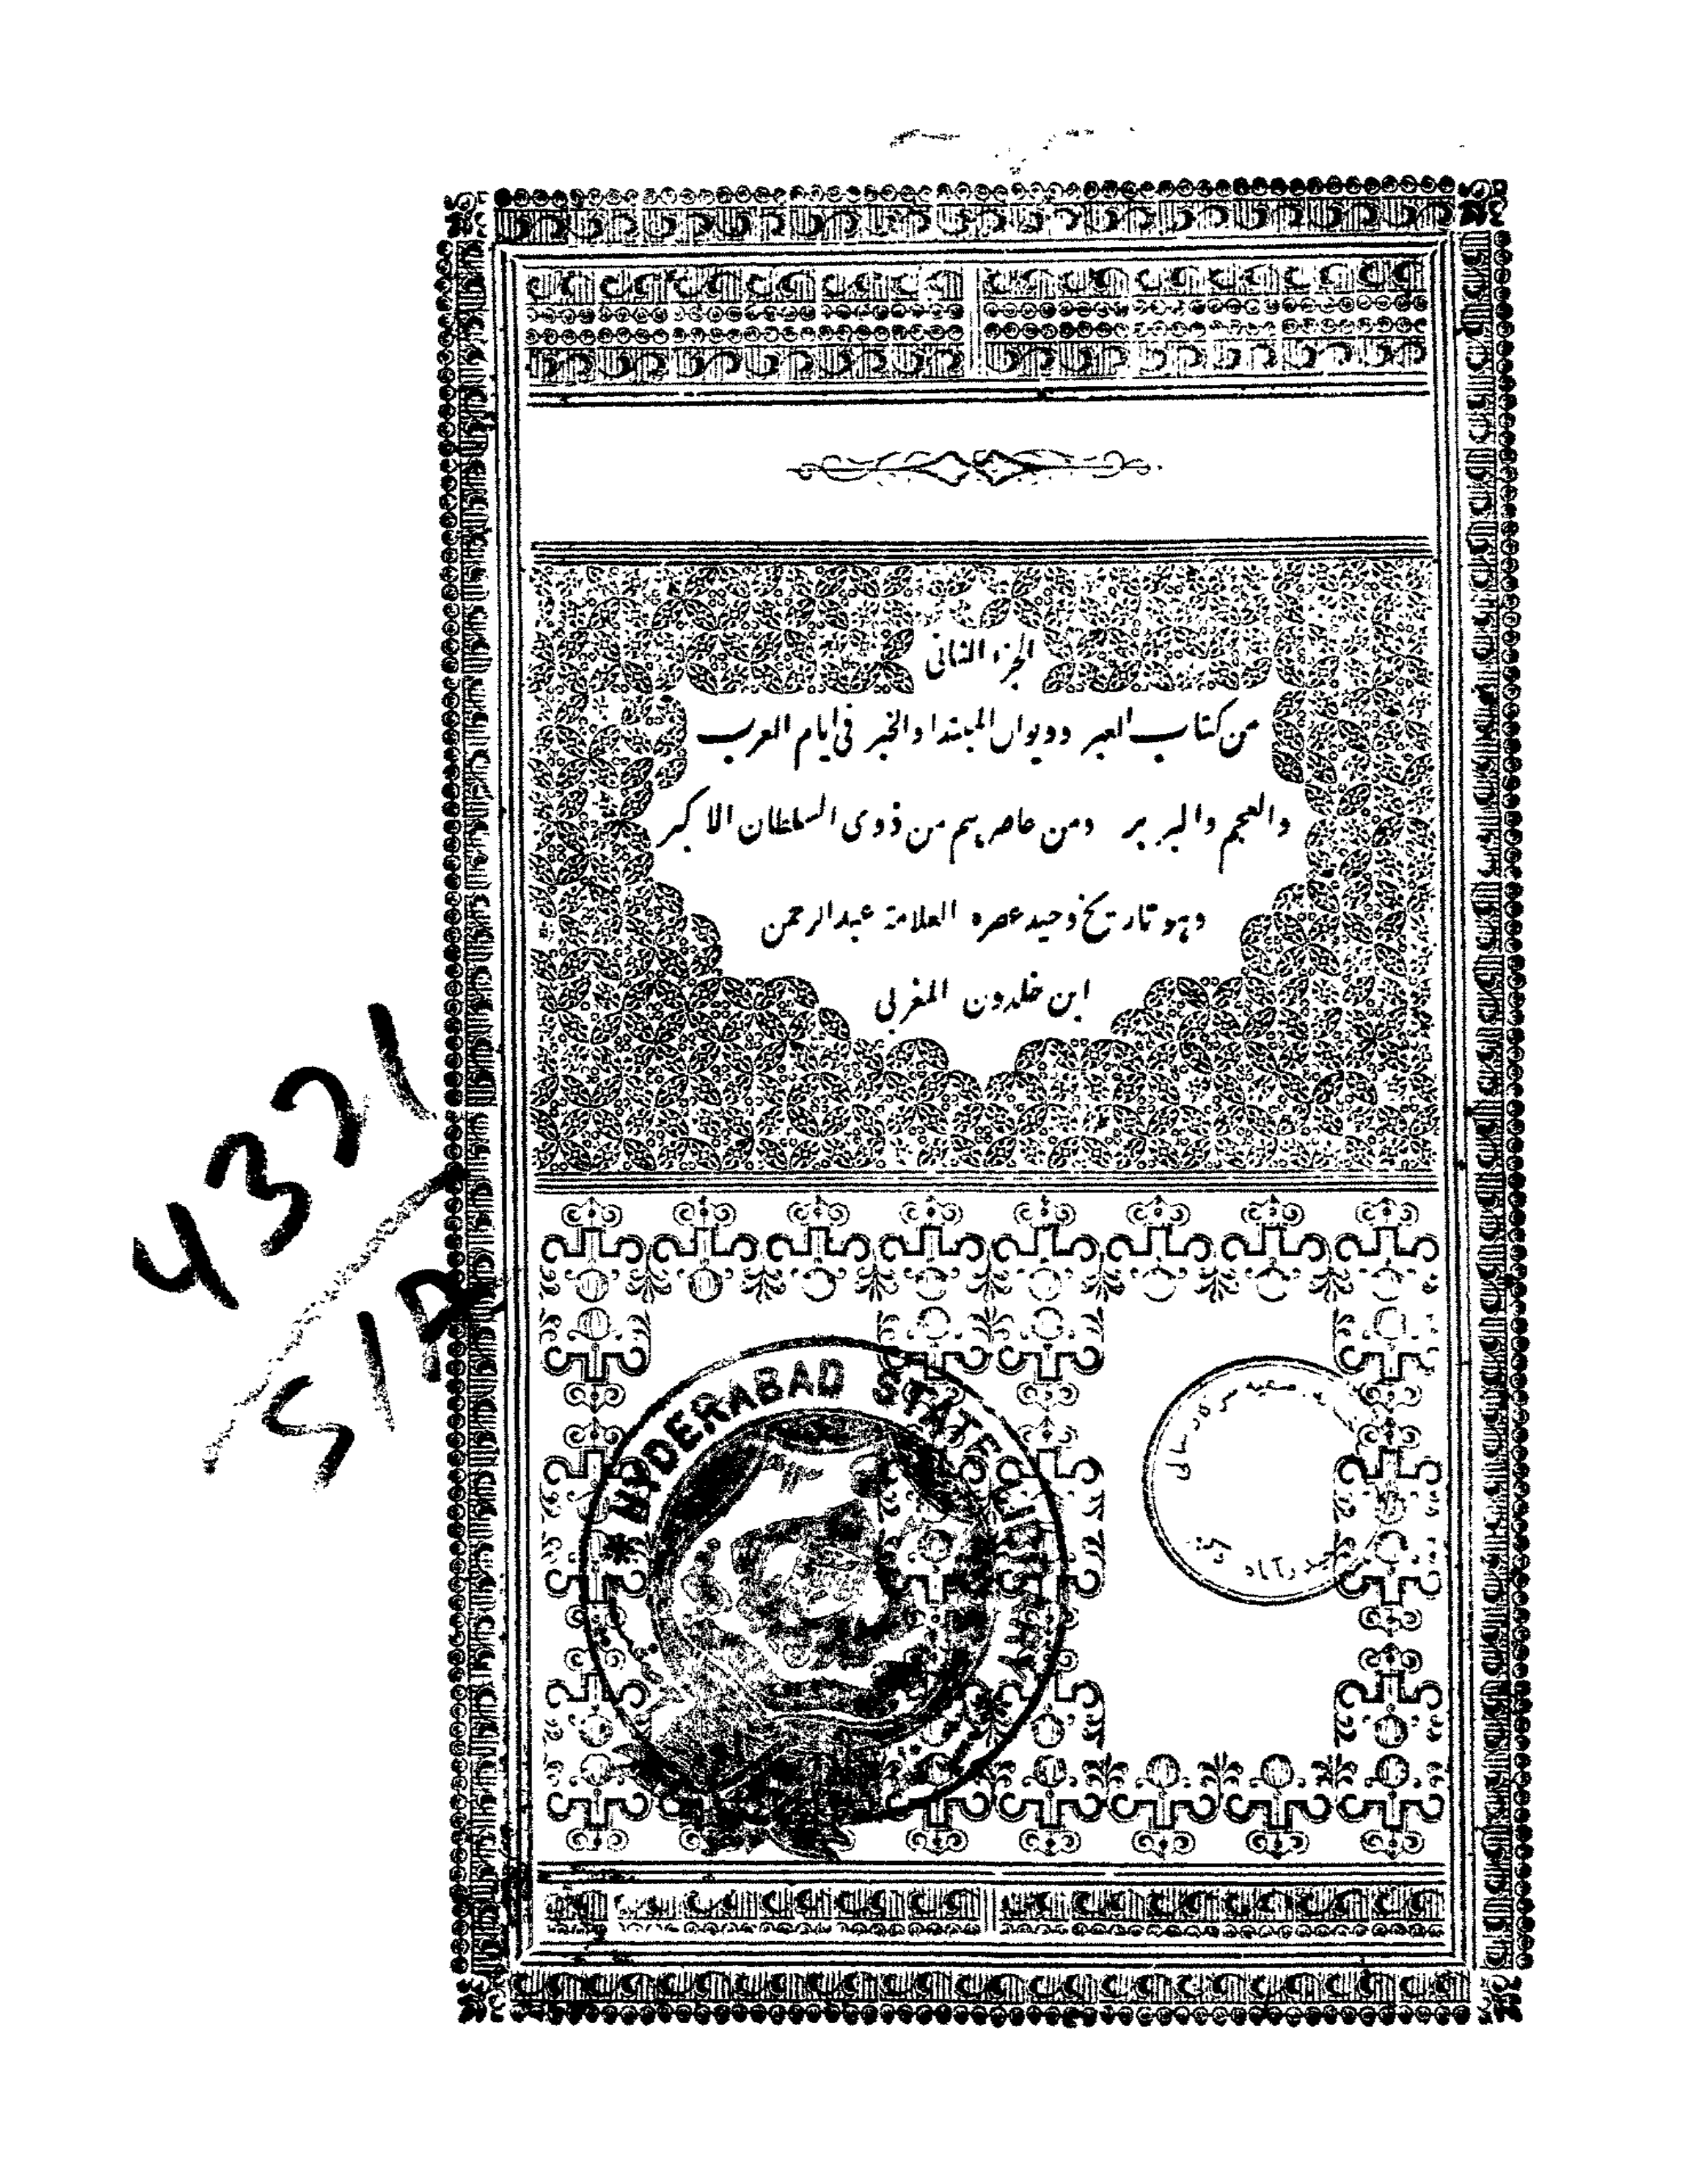 الجزء الثانى
من كتاب العبر وديوان المبتدا والخبر فى ايام العرب
والعجم والبربر ومن عاصرهم من ذوى السلطان الاكبر
وهو تاريخ وحيد عصره العلامة عبدالرحمن
ابن خلدون المغربى
4321
HYDERABAD STATE LIBRARY